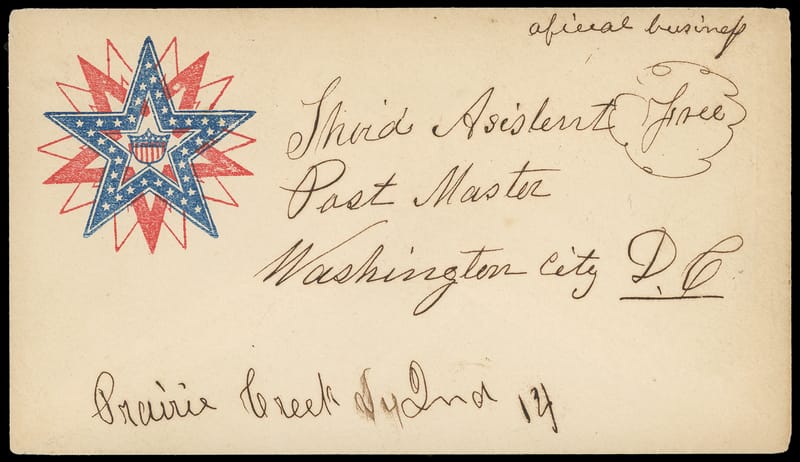 oficual busines
Thoid Asistent Free
Post Master
Washington City D. C
Prairie Creek Ind